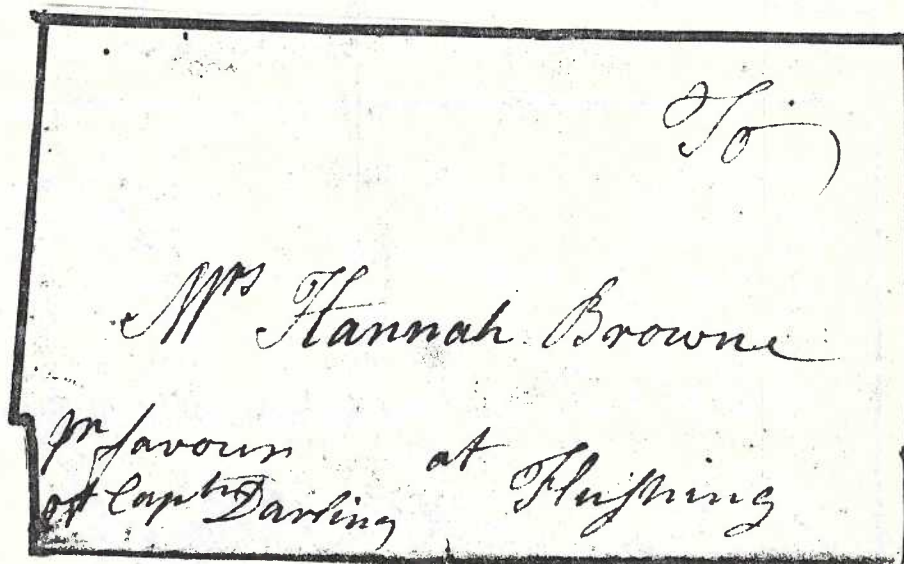 To
Mrs Hannah Browne
pr favour
of Captn Darling
at Flushing